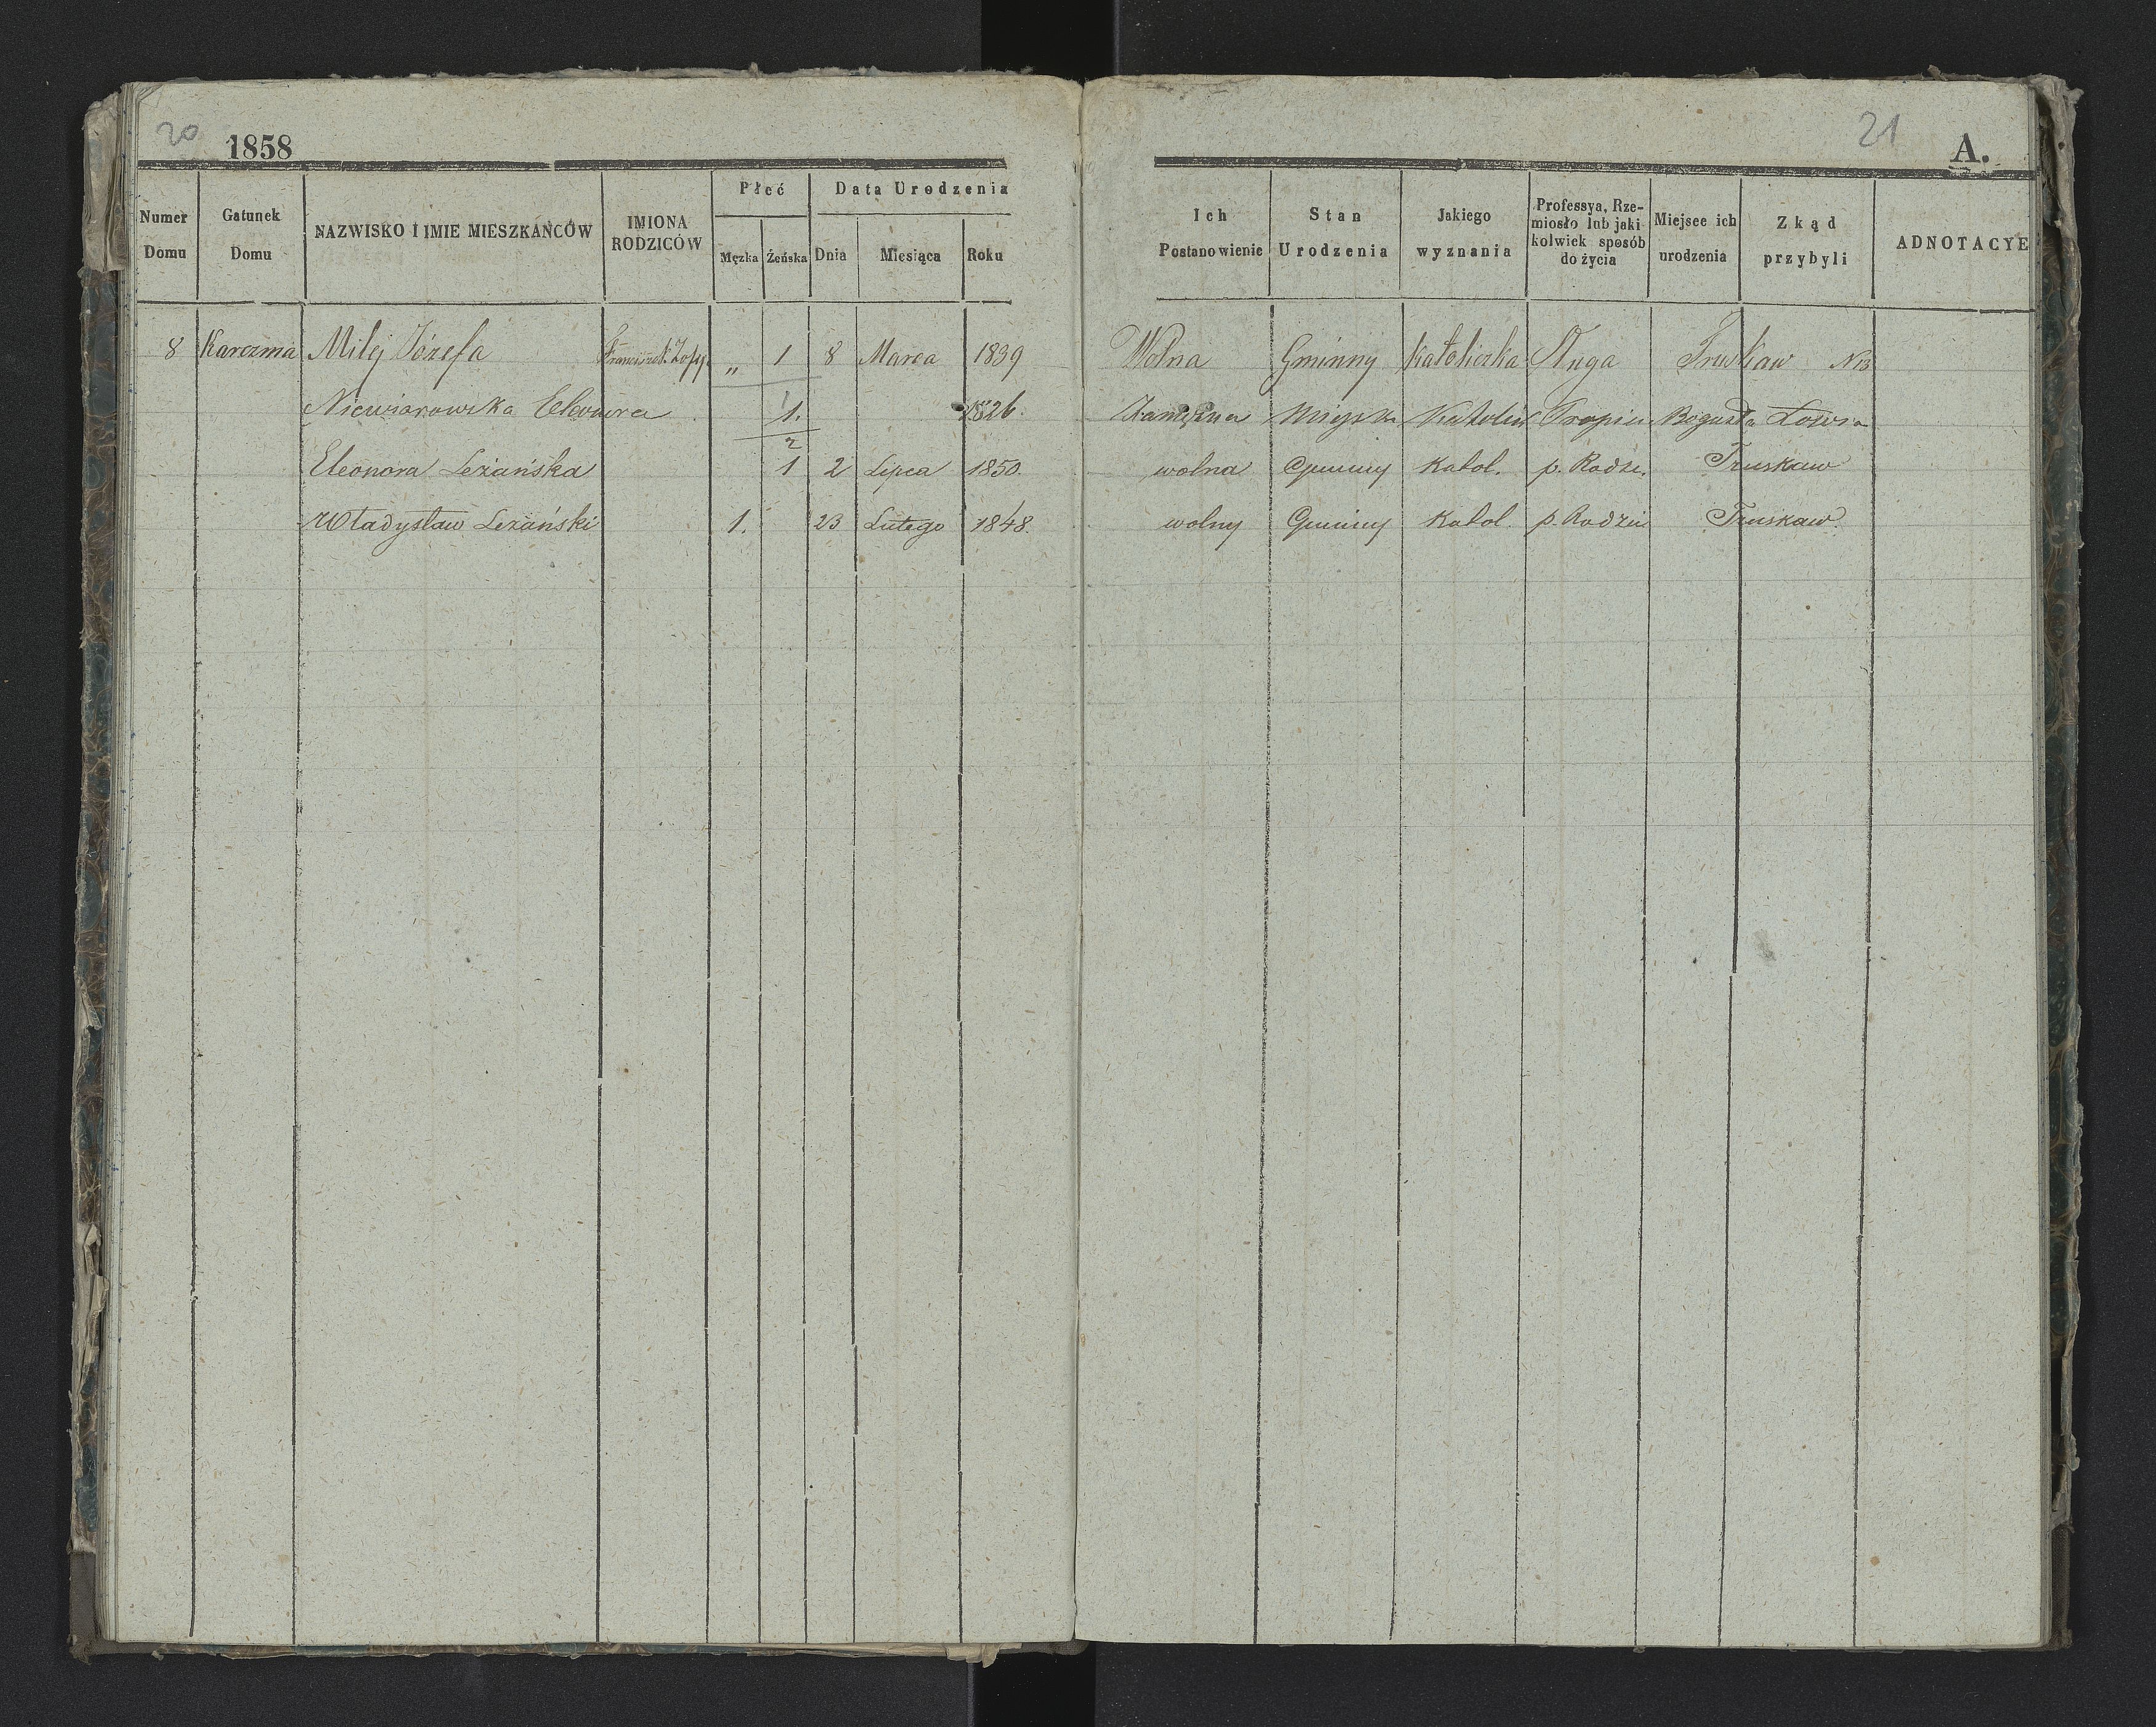 20 1858
21 A.
Numer Domu Gatunek Domu NAZWISKO I IMIE MIESZKAŃCÓW IMIONA RODZICÓW Płeć Męzka Żeńska Data Urodzenia Dnia Miesiąca Roku Ich Postanowienie Stan Urodzenia Jakiego wyznania Professya, Rze-miosło lub jaki kolwiek sposób do życia Miejsce ich urodzenia Zkąd przybyli ADNOTACYE
8 Karczma Milej Józefa Franciszek Zofija „ 1 8 Marca 1839 Wolna Gminny Katoliczka Sługa Truskaw N 13
Niewiarowska Eleonora 1. 1826. Zamężna Miejski Katolicz
2
Eleonora Leżańska 1 2 Lipca 1850. wolna Gminny Katol. p. Rodz. Truskaw
Władysław Leżański 1. 23 Lutego 1848. wolny Gminny Katol p. Rodzic Truskaw.